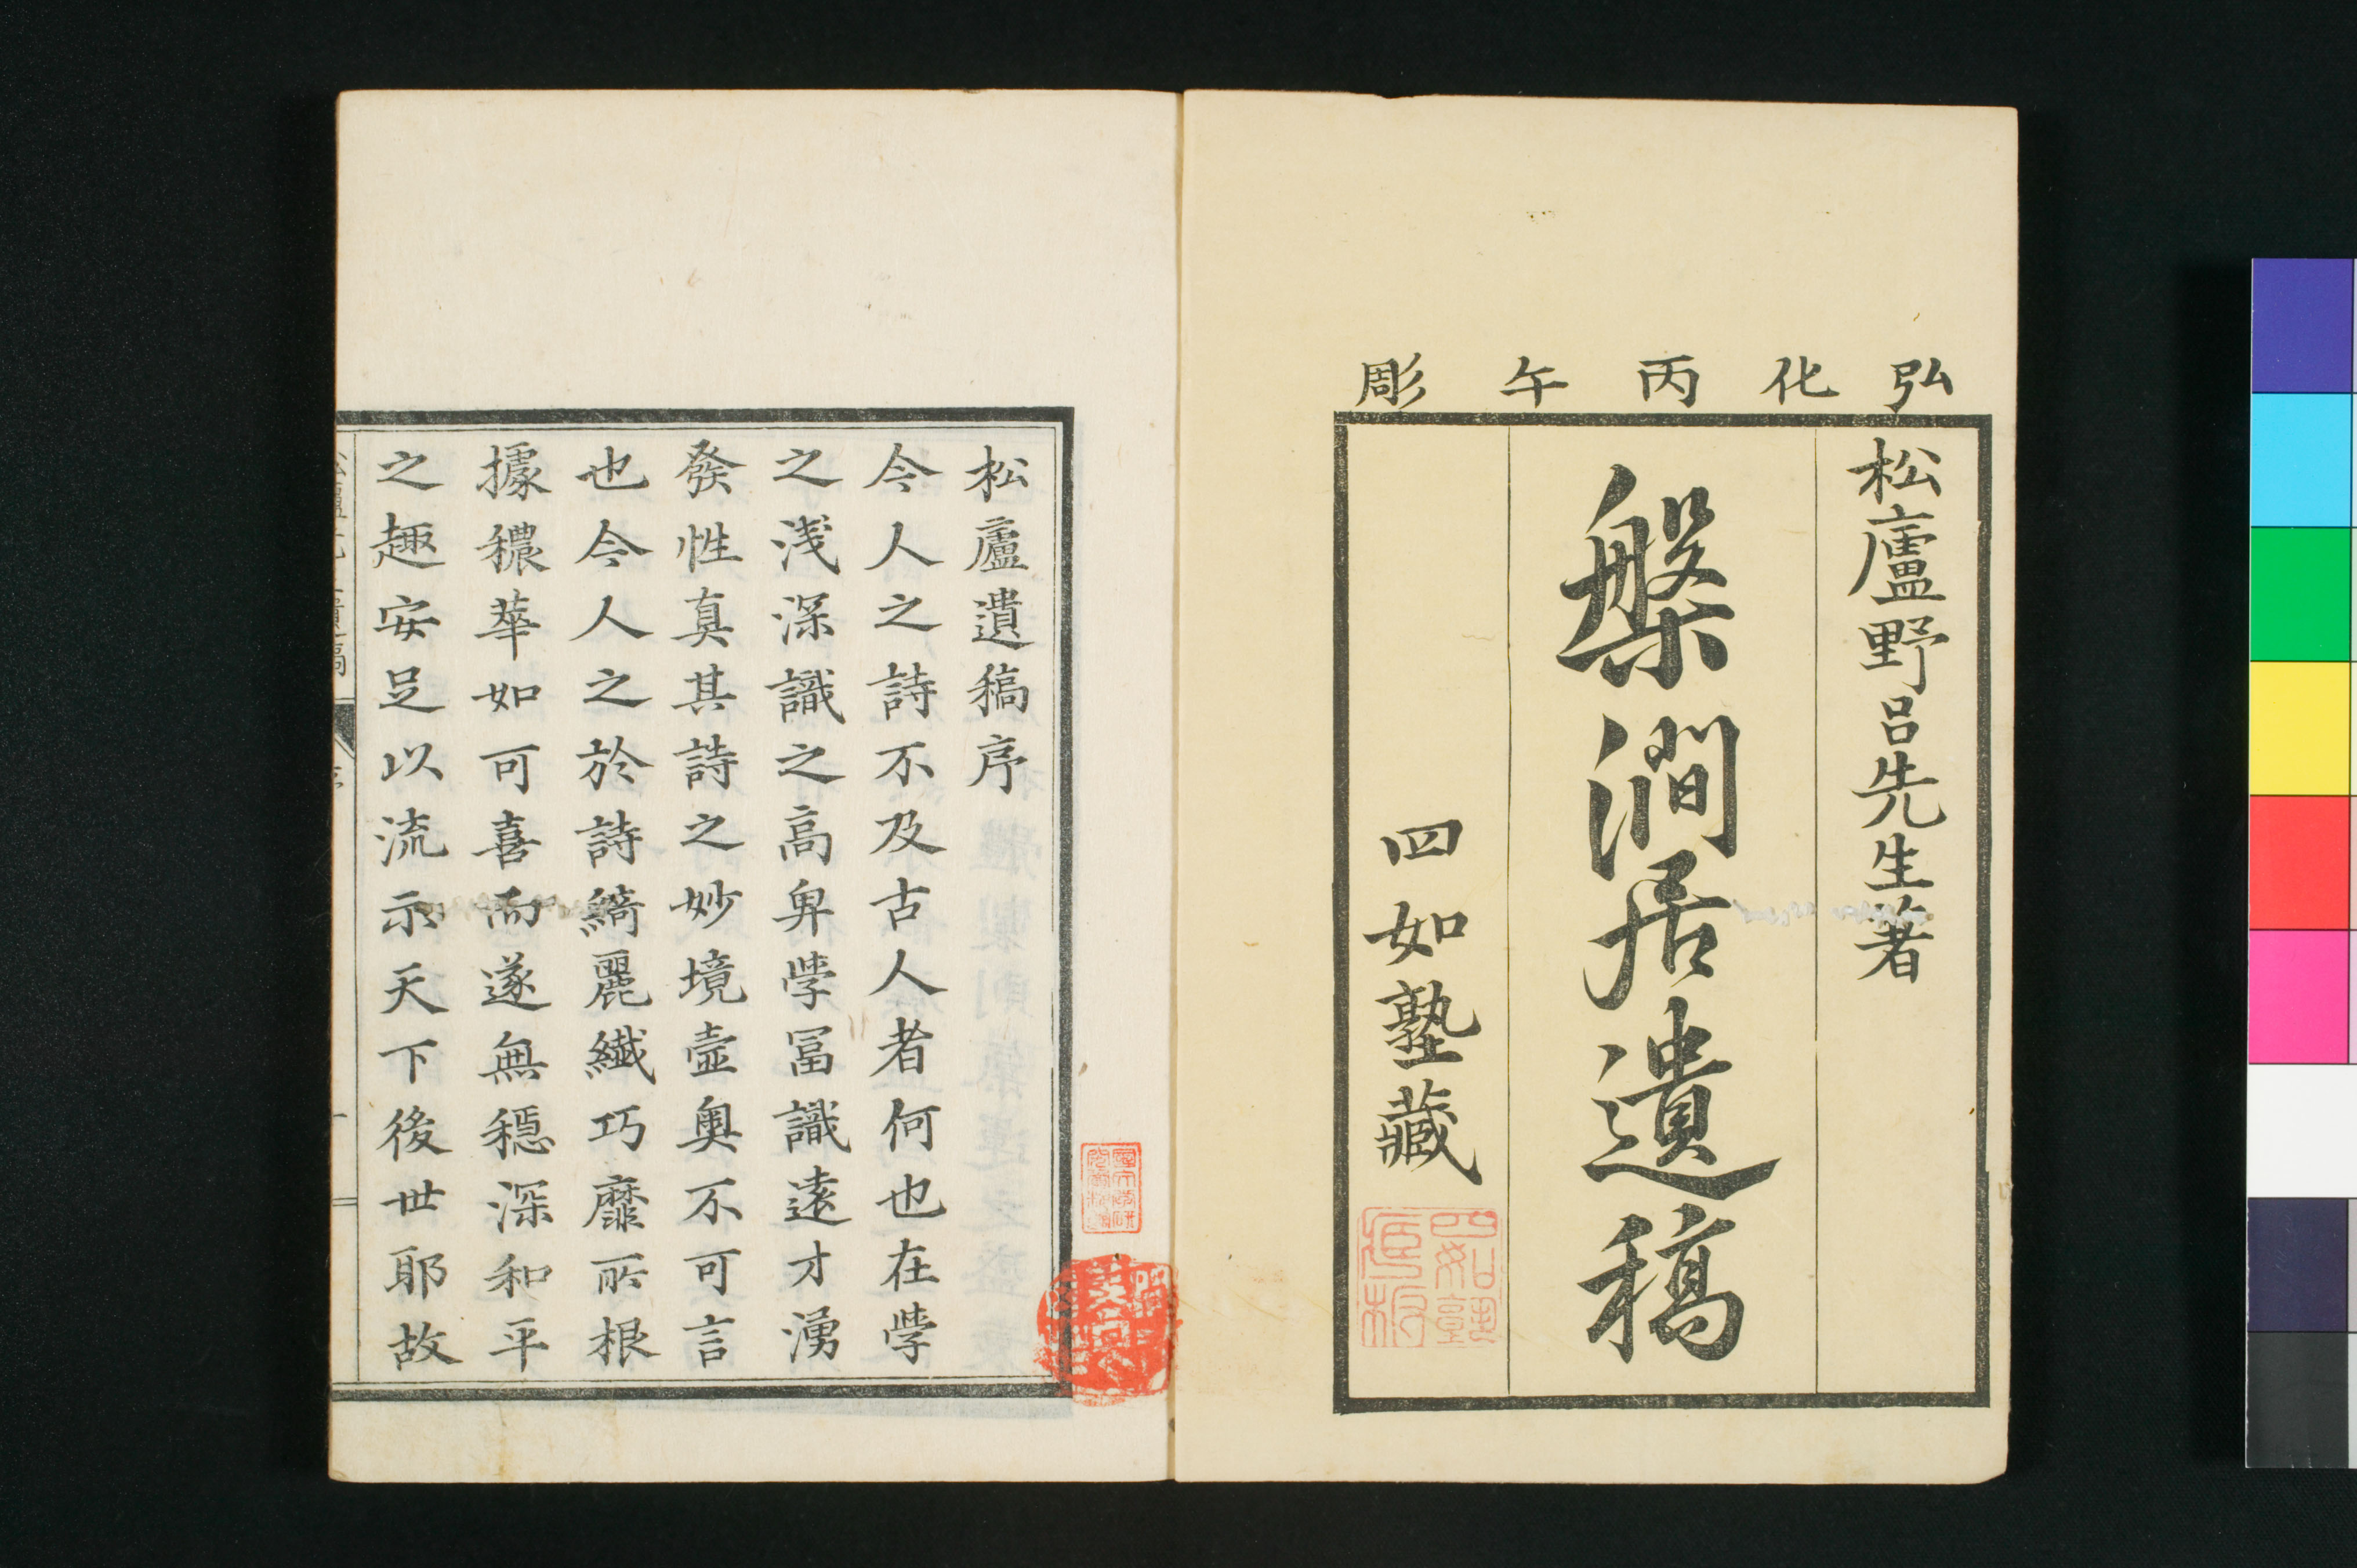 弘化丙午彫
松廬野呂先生著
槃澗居遺稿
四如塾藏
松廬遺稿序
今人之詩不及古人者何也在学
之浅深識之高卑学冨識遠才湧
發性真其詩之妙境壼奥不可言
也今人之於詩綺麗纖巧靡所根
據穠華如可喜而遂無穩深和平
之趣安足以流示天下後世耶故